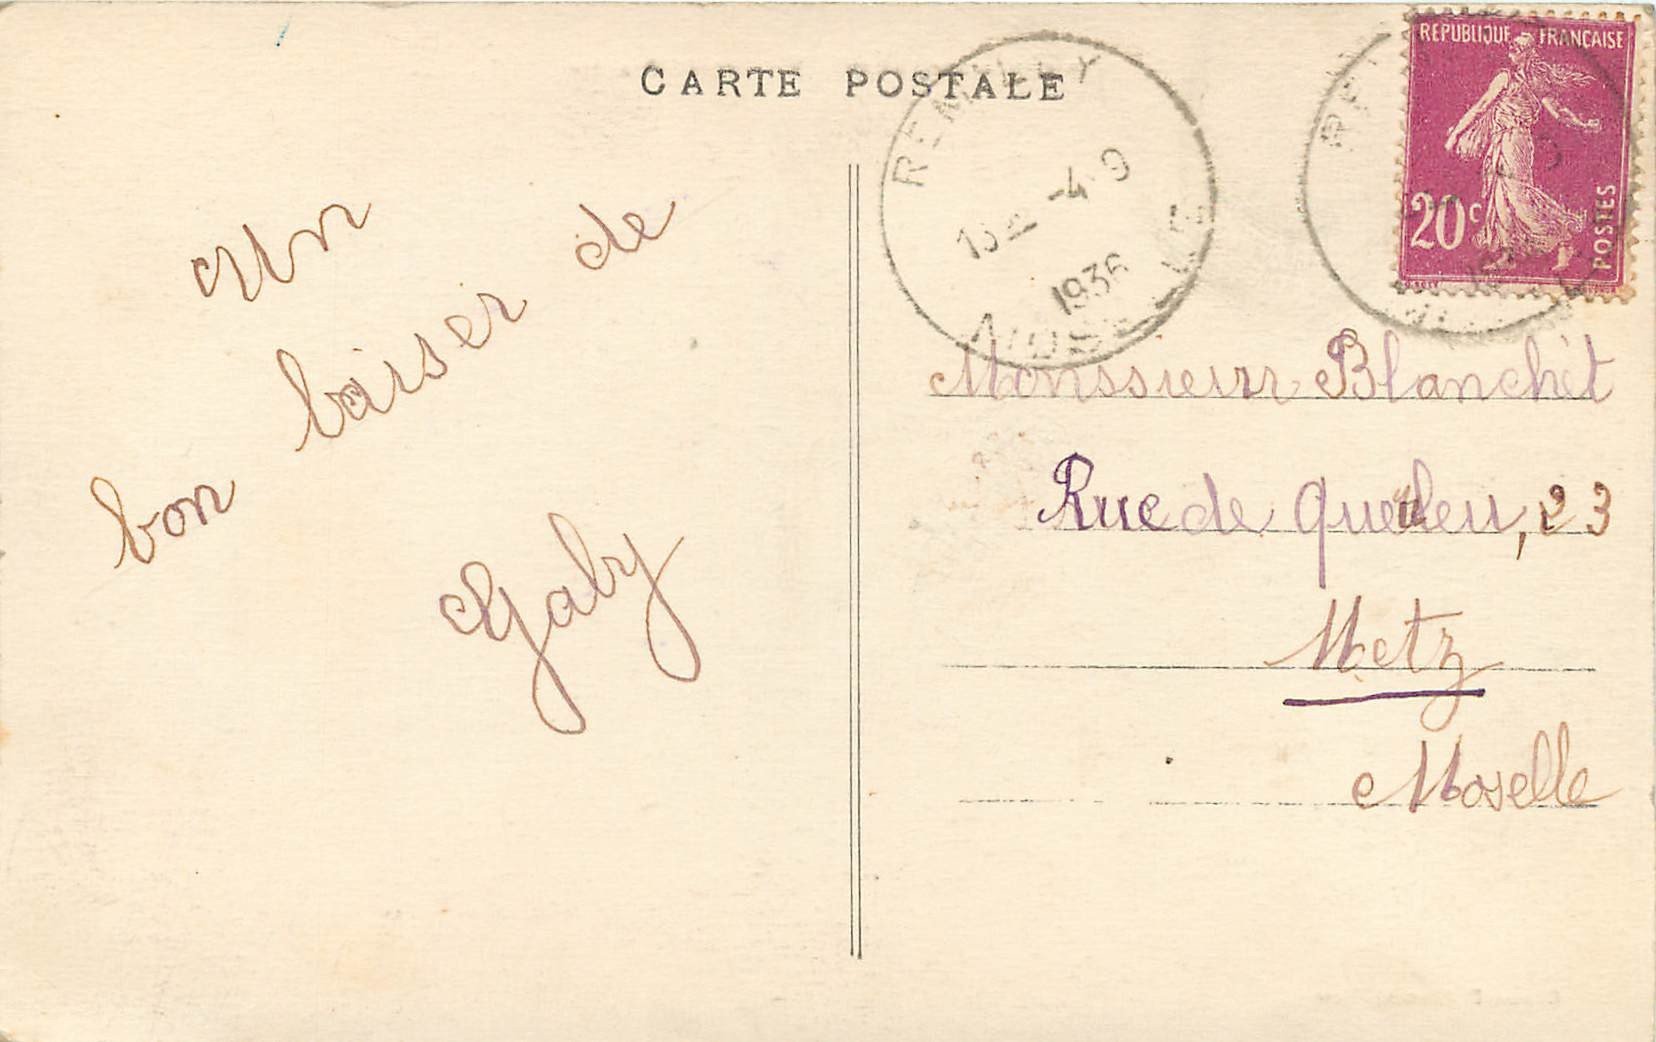 CARTE POSTALE
REMILLY
4-9
1936
MOSELLE
REPUBLIQUE FRANÇAISE
20c
POSTES
Un
bon baiser de
Gaby
Monssieur Blanchet
Rue de Queuleu, 23
Metz
Moselle